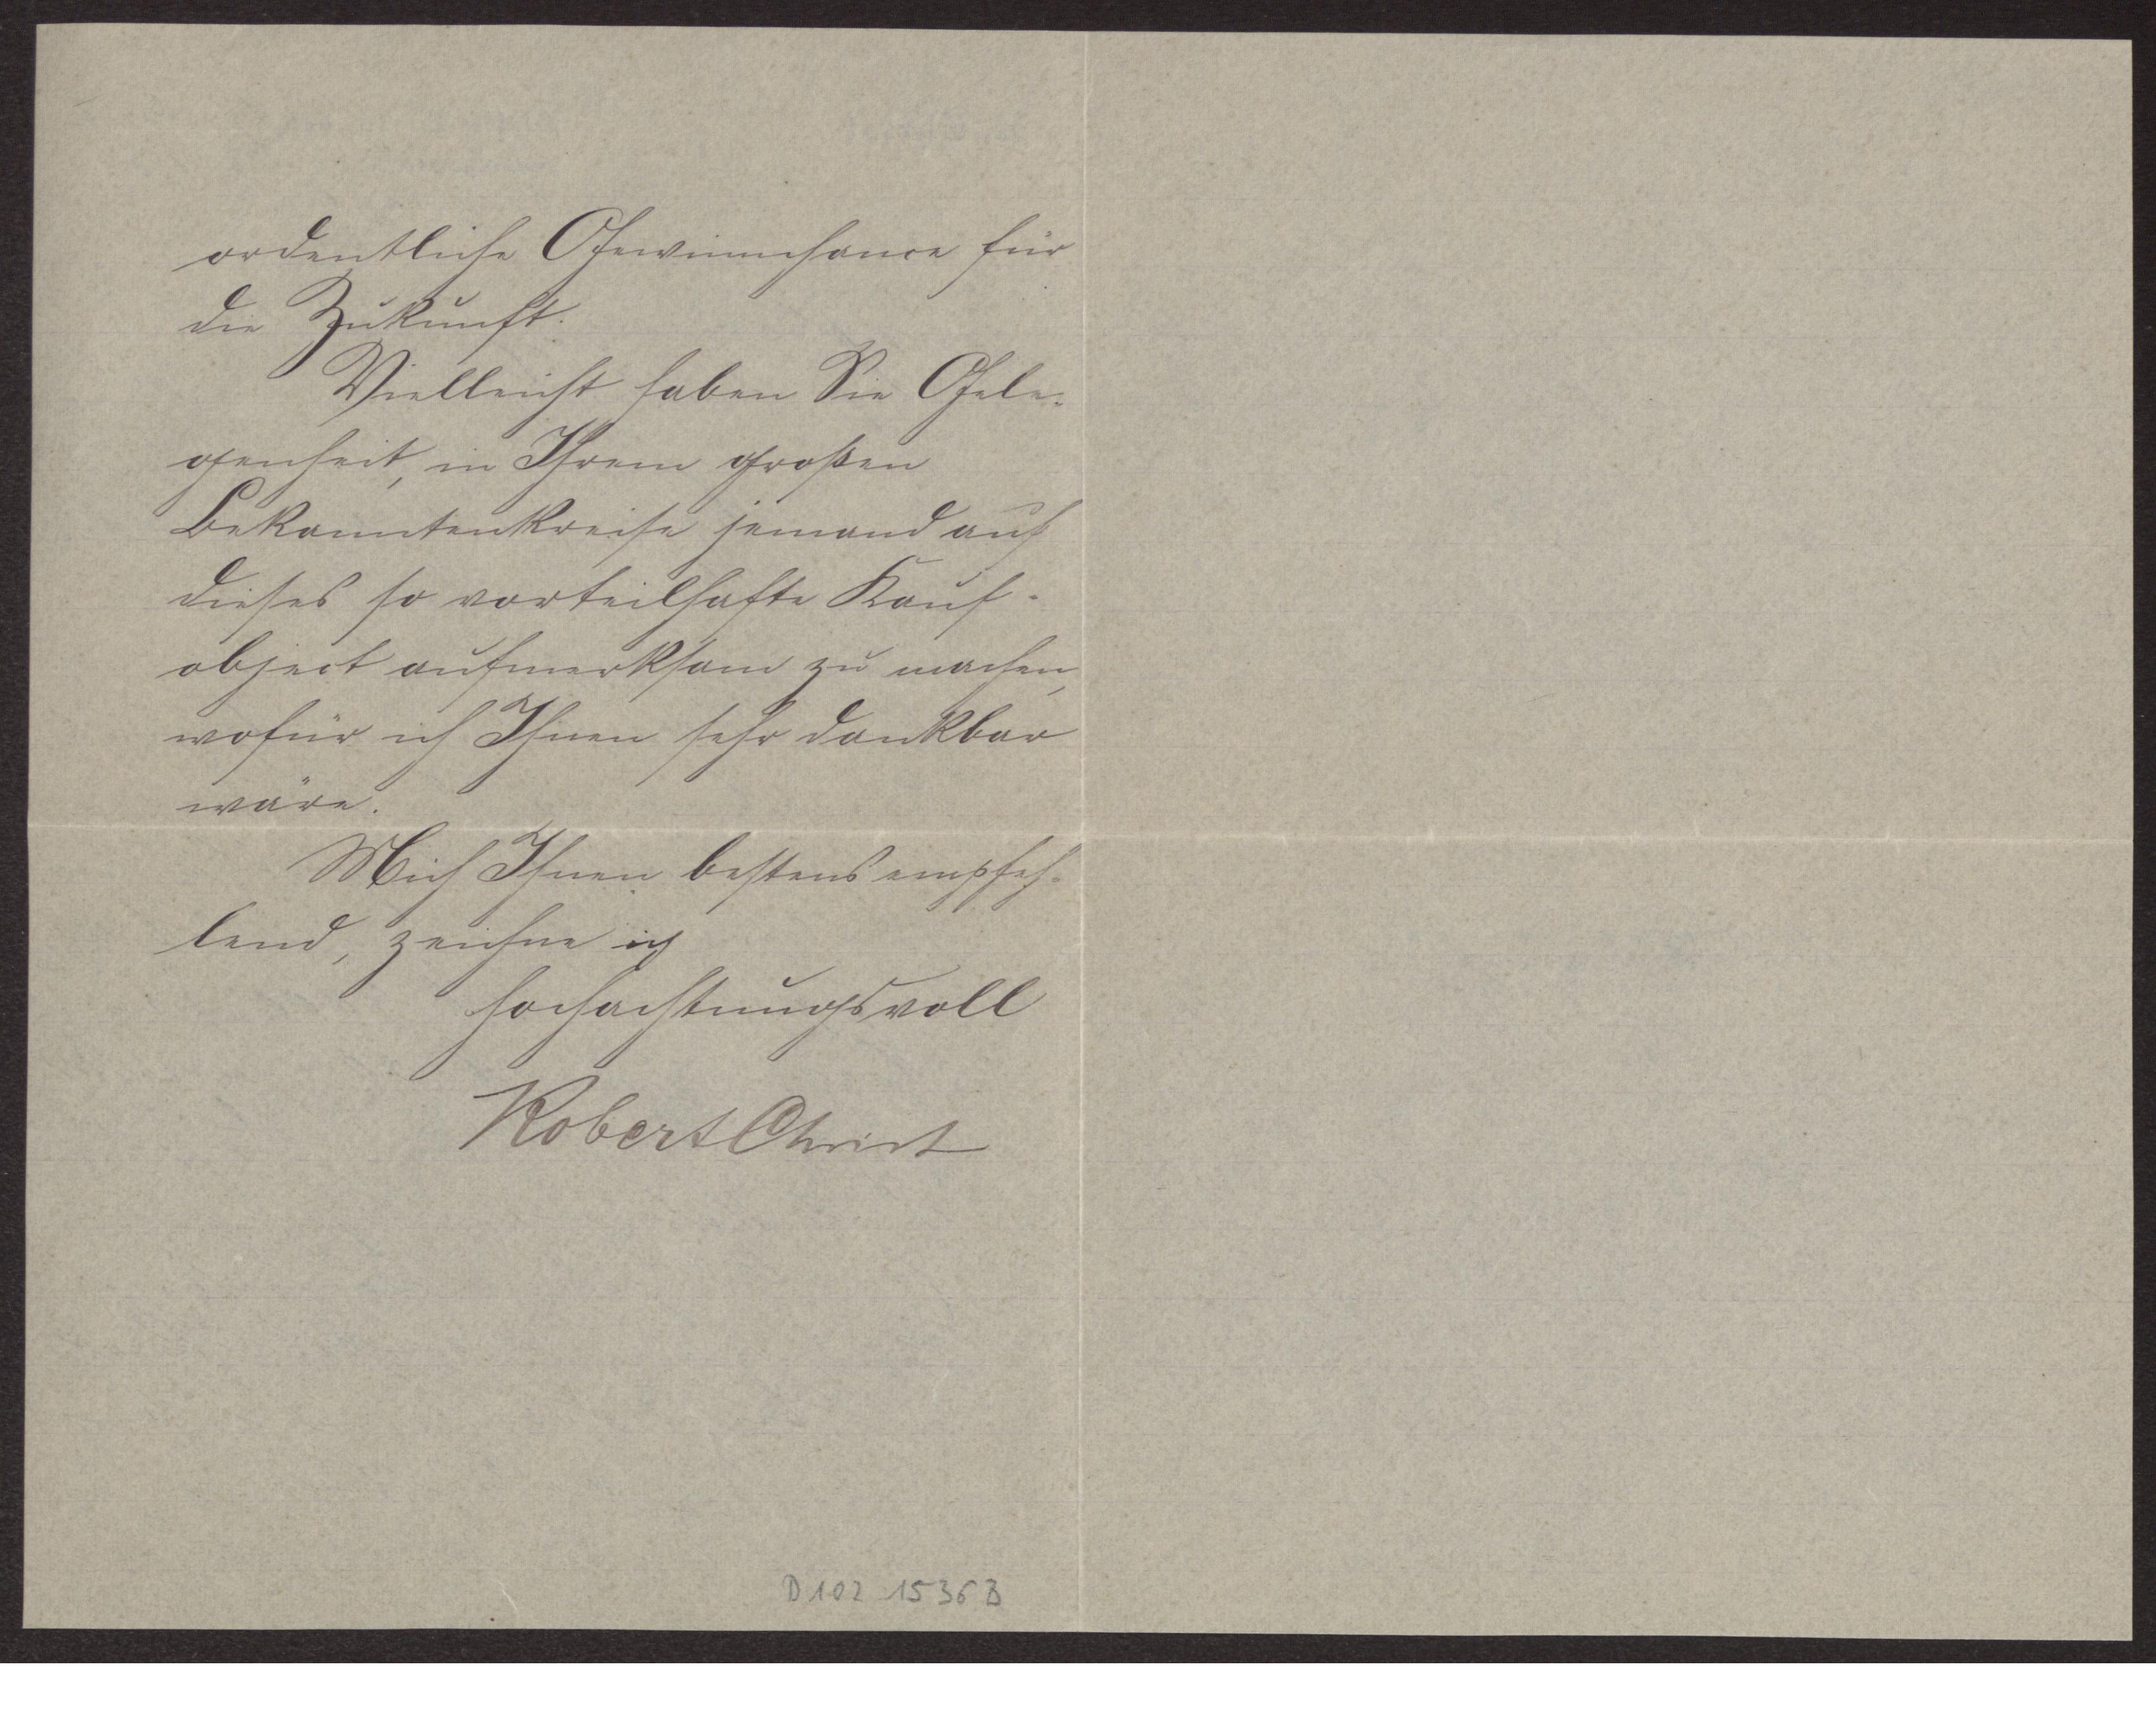 ordentliche Gewinnchance für
die Zukunft.
Vielleicht haben Sie Gele-
genheit, in Ihrem großen
Bekanntenkreise jemand auf
dieses so vorteilhafte Kauf-
object aufmerksam zu machen,
wofür ich Ihnen sehr dankbar
wäre.
Mich Ihnen bestens empfeh-
lend, zeichne ich
hochachtungsvoll
Robert Christ
D102 1536B